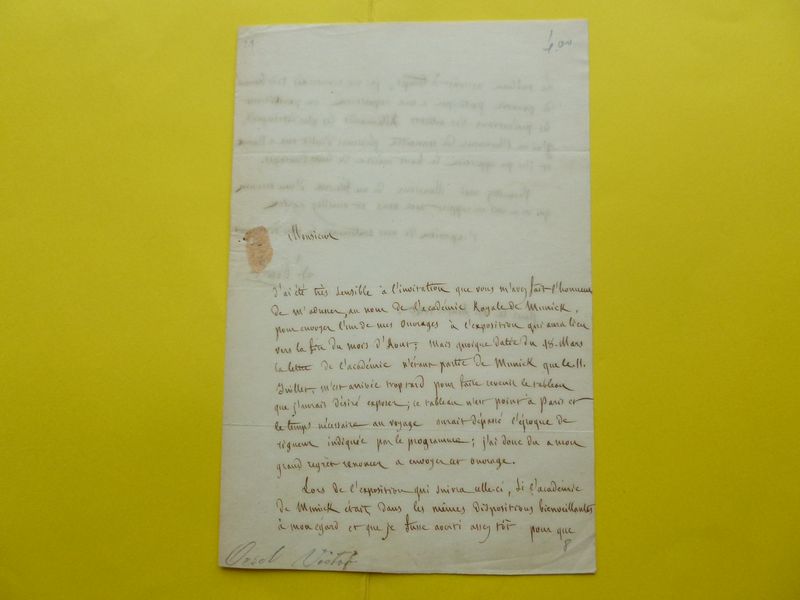 Monsieur
J'ai été très sensible à l'invitation que vous m'avez fait l'honneur
de m'adresser, au nom de l'académie Royale de Munick,
pour envoyer l'un de mes ouvrages à l'exposition qui aura lieu
vers la fin du mois d'Aout; mais quoique datée du 15 Mars
la lettre de l'académie n'étant partie de Munick que le 11
Juillet, m'est arrivée trop tard pour faire revenir le tableau
que j'aurais désiré exposer; ce tableau n'est point à Paris et
le temps nécessaire au voyage aurait dépassé l'époque de
rigueur indiquée par le programme; j'ai donc du a mon
grand regrèt renoncer a envoyer cet ouvrage.
Lors de l'exposition qui suivra celle-ci, si l'académie
de Munick était dans les mêmes dispositions bienveillantes
à mon égard et que je fusse averti assez tôt pour que
8
Orsel Victor